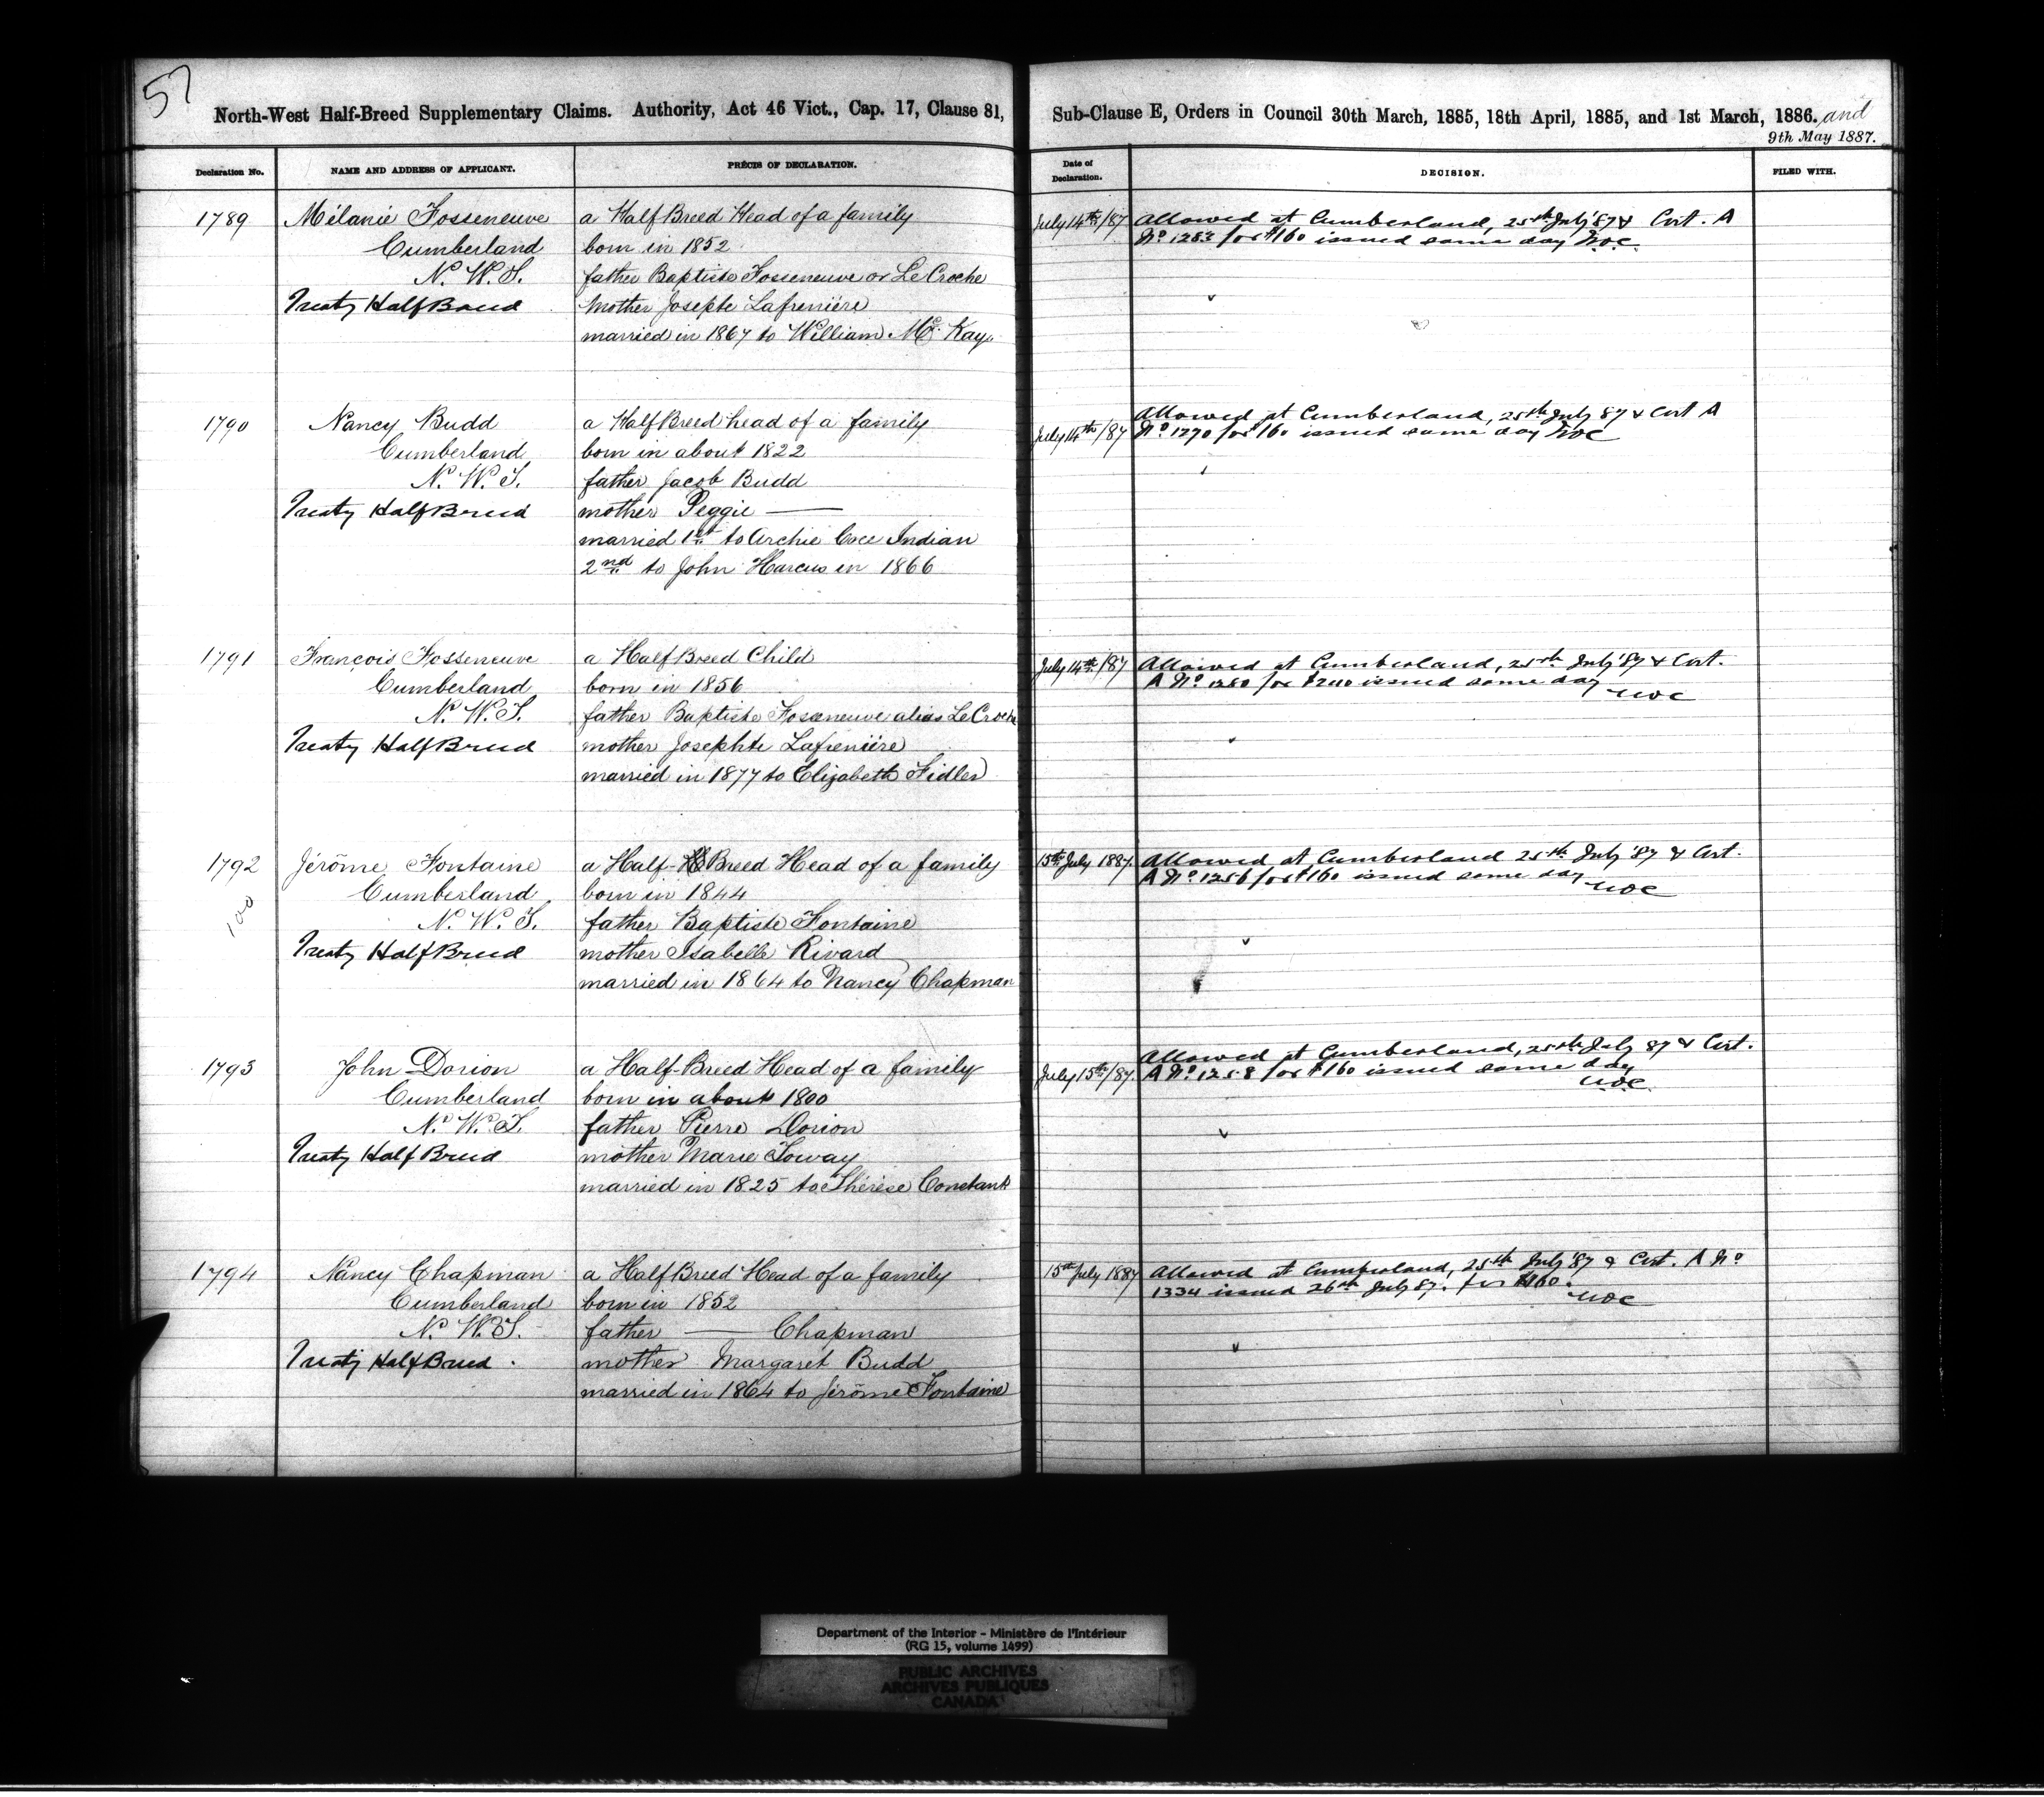 57
North-West Half-Breed Supplementary Claims. Authority, Act 46 Vict., Cap. 17, Clause 81, Sub-Clause E, Orders in Council 30th March, 1885, 18th April, 1885, and 1st March, 1886. and
9th May 1887.
Declaration No. NAME AND ADDRESS OF APPLICANT. PRÉCIS OF DECLARATION. Date of Declaration. DECISION. FILED WITH.
1789 Mélanie Fosseneuve a Half Breed Head of a family July 14th/87 Allowed at Cumberland, 25th July '87 & Cert. A
Cumberland born in 1852 No 1253 for $160 issued same day
N. W. T. father Baptiste Fosseneuve or Le Croche
Treaty Half Breed Mother Josepte Lafrenière
married in 1867 to William Mc Kay.
1790 Nancy Budd a Half Breed head of a family July 14th/87 Allowed at Cumberland, 25th July 87 & Cert A
Cumberland born in about 1822 No 1270 for $160 issued same day
N. W. T. father Jacob Budd
Treaty Half Breed mother Peggie —
married 1st to Archie Indian
2nd to John Harcus in 1866
1791 François Fosseneuve a Half Breed Child July 14th/87 Allowed at Cumberland, 25th July '87 & Cert.
Cumberland born in 1856 A No 1280 for $240 issued same day
N. W. T. father Baptiste Fosseneuve alias Le Croche
Treaty Half Breed mother Josephte Lafrenière
married in 1877 to Elizabeth Fidler
1792 Jérôme Fontaine a Half-Breed Head of a family 15th July 1887. Allowed at Cumberland 25th July '87 & Cert.
Cumberland born in 1844 A No 1256 for $160 issued same day
100 N. W. T. father Baptiste Fontaine
Treaty Half Breed mother Isabelle Rivard
married in 1864 to Nancy Chapman
1793 John Dorion a Half-Breed Head of a family July 15th/87. Allowed at Cumberland, 25th July 87 & Cert.
Cumberland born in about 1800 A No 1258 for $160 issued same day
N. W. T. father Pierre Dorion
Treaty Half Breed mother Marie
married in 1825 to Thérèse Constant
1794 Nancy Chapman a Half Breed Head of a family 15th July 1887 Allowed at Cumberland, 25th July '87 & Cert. A No
Cumberland born in 1852 1334 issued 26th July 87. for $160.
N. W. T. father — Chapman
Treaty Half Breed. mother Margaret Budd
married in 1864 to Jérôme Fontaine
Department of the Interior - Ministère de l'Intérieur
(RG 15, volume 1499)
PUBLIC ARCHIVES
ARCHIVES PUBLIQUES
CANADA